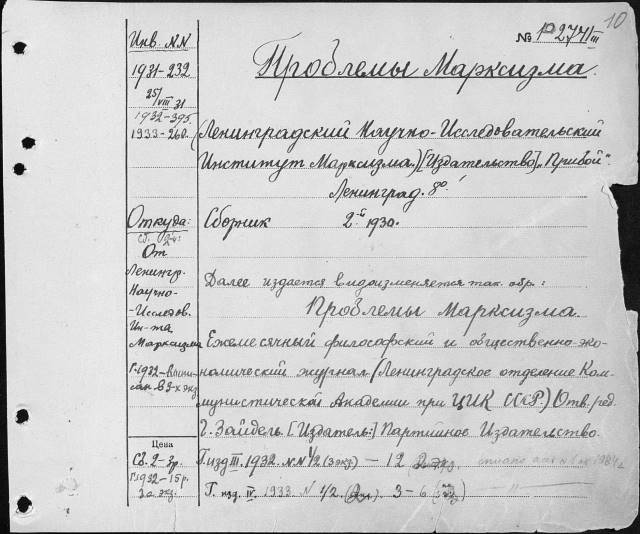 10
№ P2741/III
Инв. NN
Проблемы Марксизма.
1931-232
25/VIII 31
1932-395.
1933-260.
(Ленинградский Научно-Исследовательский
Институт Марксизма.) [Издательство] „Прибой“.
Ленинград. 8°.
Откуда:
Сборник 2-й 1930.
Сб. 2й:
От
Ленингр.
Научно-
Исследов.
Ин-та
Марксизма
Далее издается видоизменяется так. обр.:
Проблемы Марксизма.
Ежемесячный философский и общественно-эко-
номический журнал (Ленинградское отделение Ком-
мунистической Академии при ЦИК СССР.) Отв. ред.
Г. Зайдель. [Издатель:] Партийное Издательство.
Г. 1932-
в 3-х экз
Цена
Сб. 2 - 3р.
Г. 1932-15р.
за экз.
Г. изд III. 1932. N.N 1/2 (3 экз) — 12
Г. изд. IV. 1933. N 1/2. 3-6